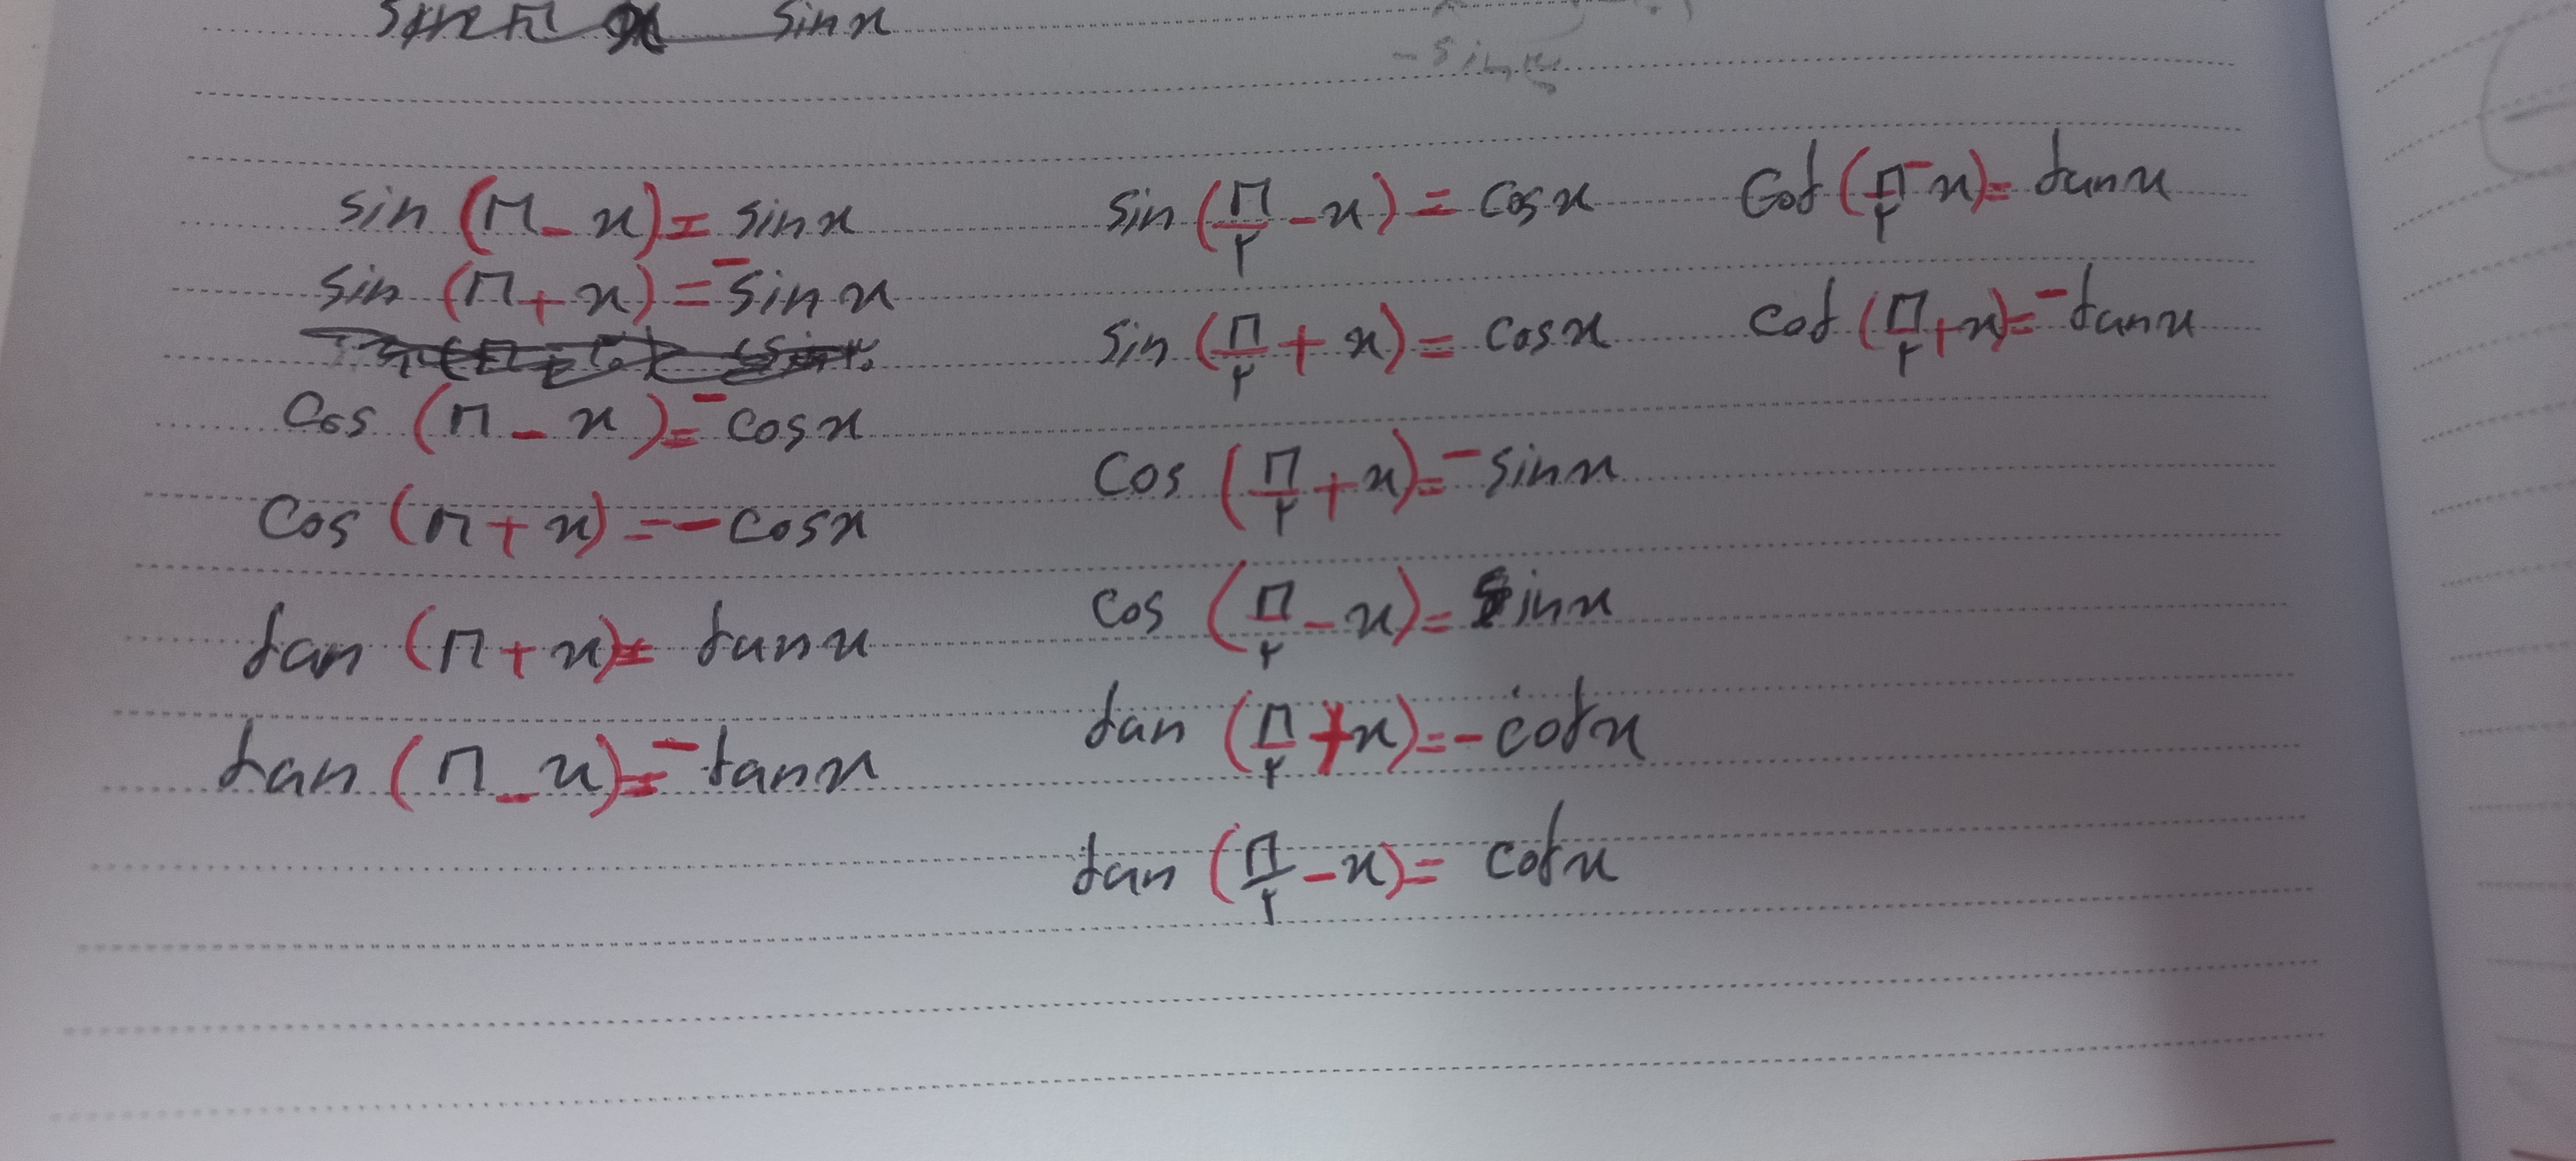 sin x
- sin x
sin (π - x) = sin x
sin (π + x) = - sin x
cos (π - x) = - cos x
cos (π + x) = - cos x
tan (π + x) = tan x
tan (π - x) = - tan x
sin (π/۲ - x) = cos x
sin (π/۲ + x) = cos x
cos (π/۲ + x) = - sin x
cos (π/۲ - x) = sin x
tan (π/۲ + x) = - cot x
tan (π/۲ - x) = cot x
Cot (π/۲ - x) = tan x
cot (π/۲ + x) = - tan x